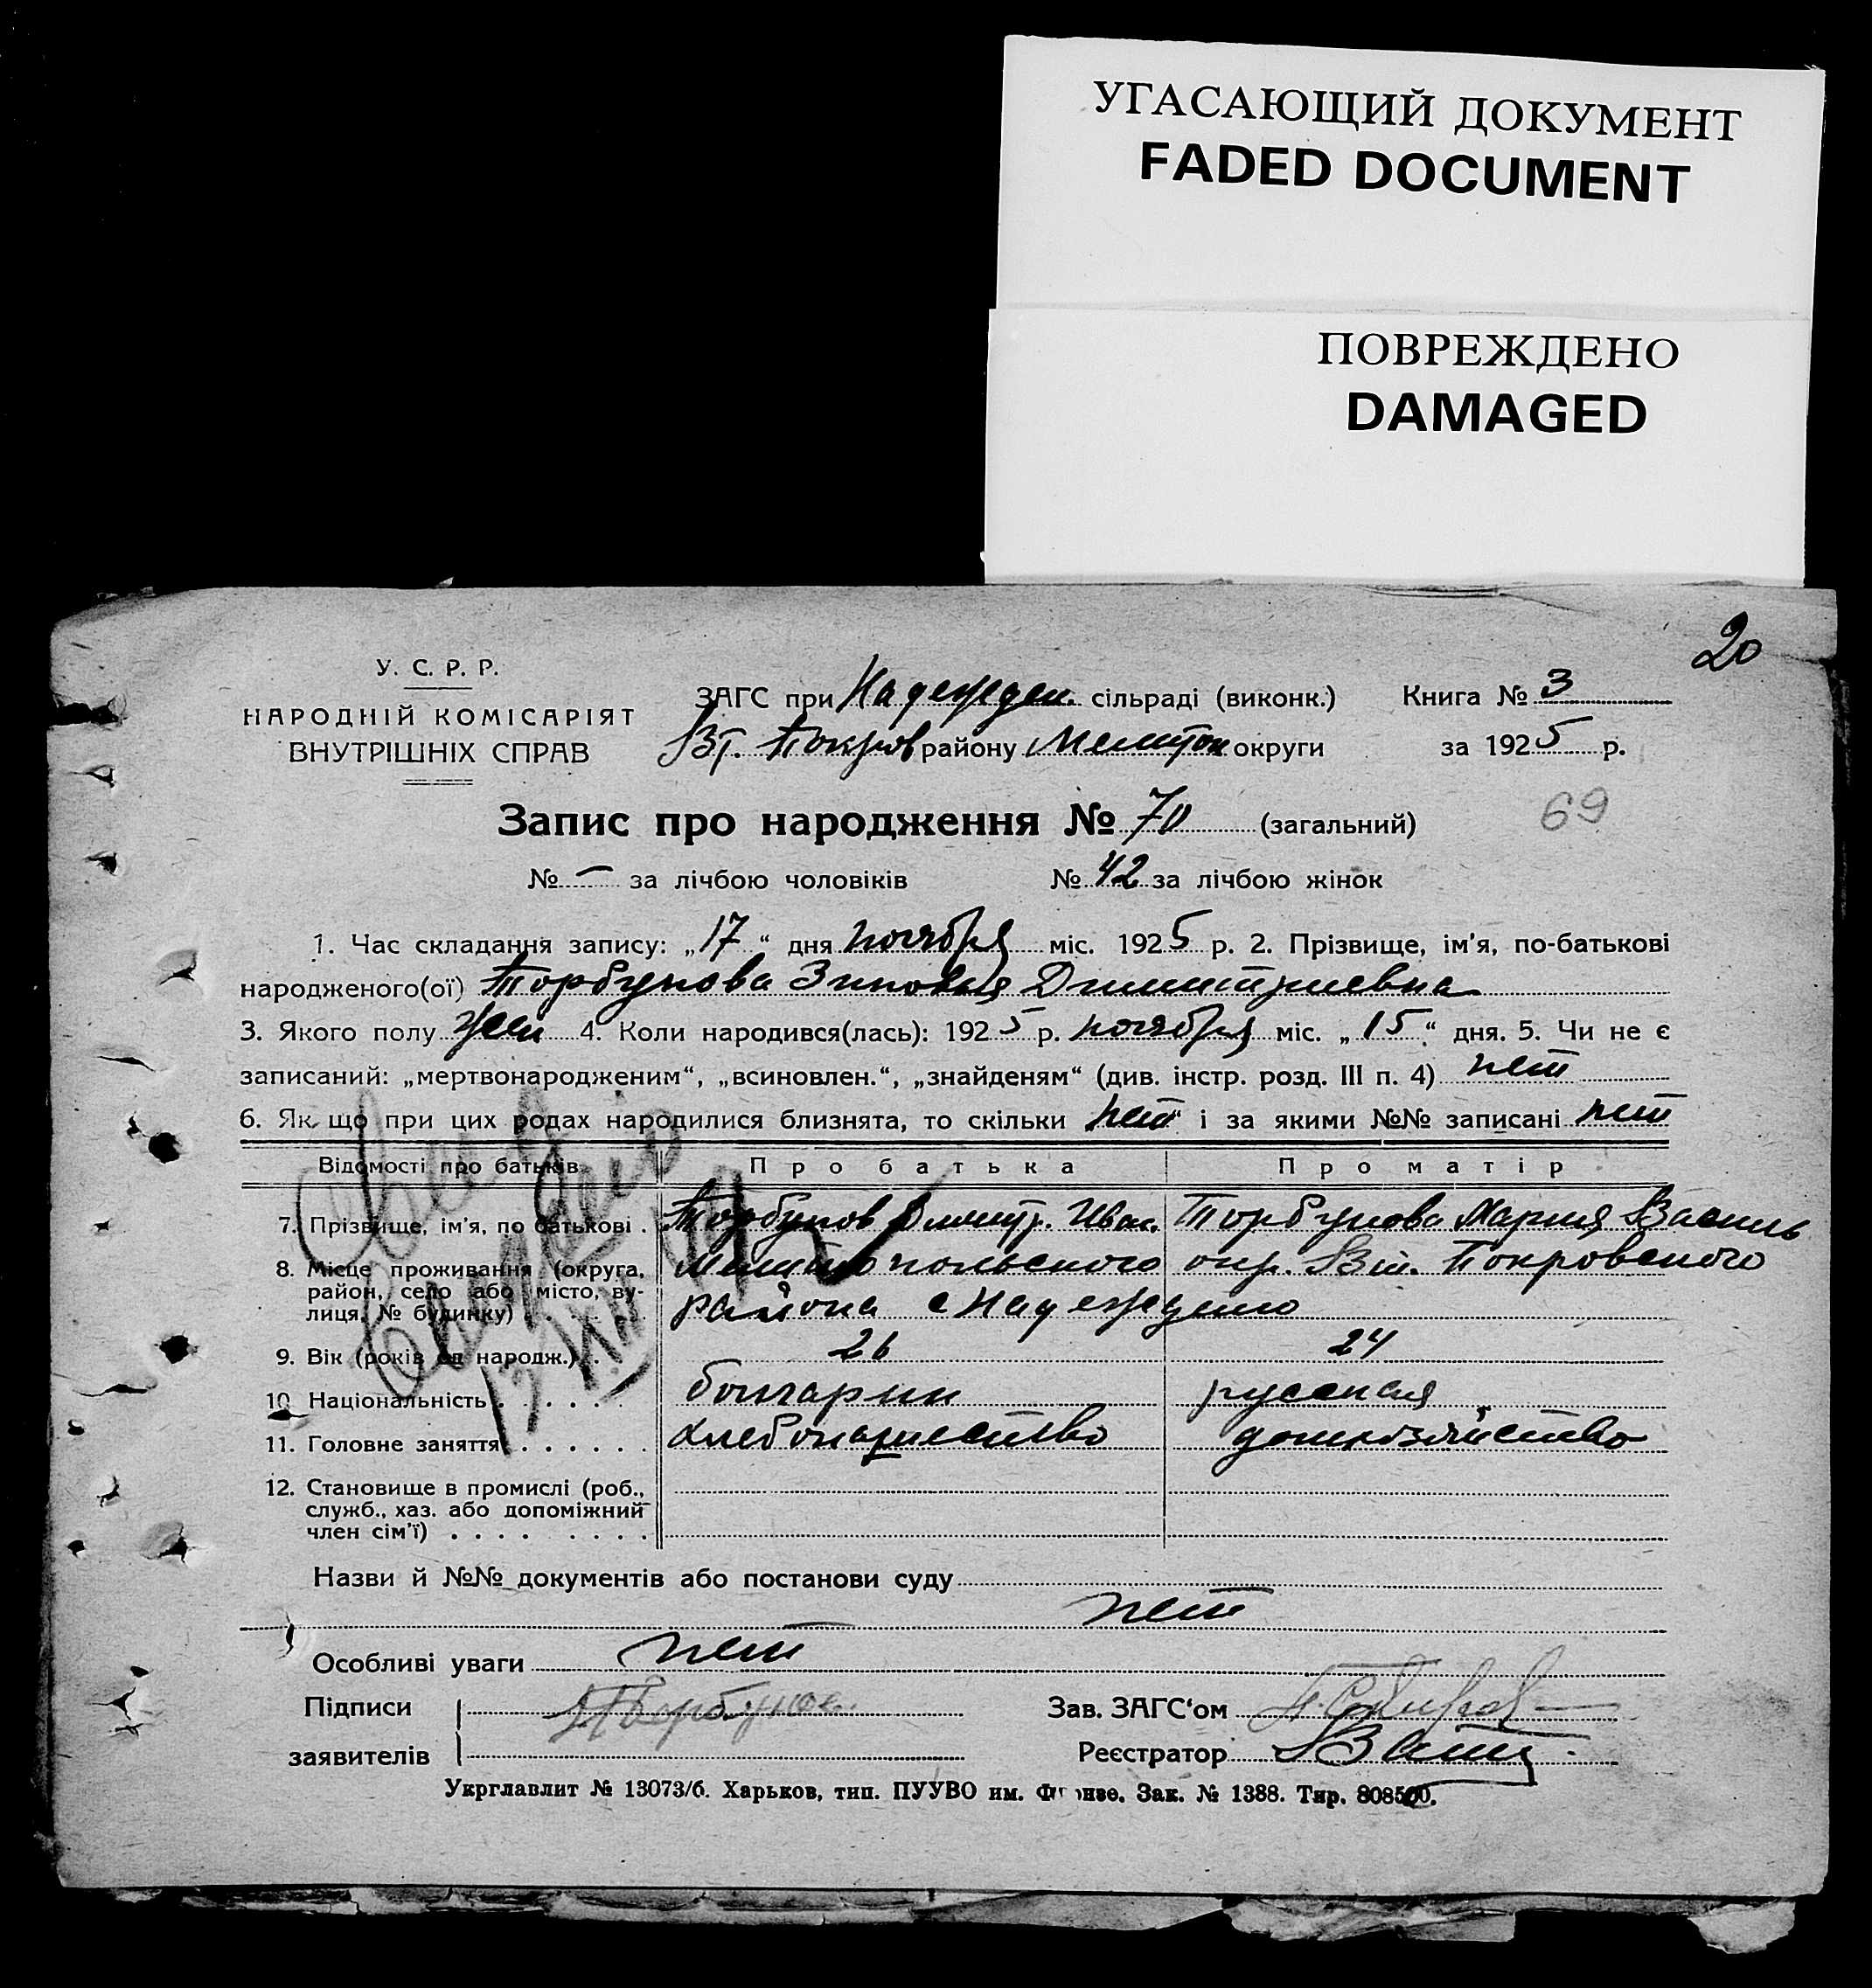 УГАСАЮЩИЙ ДОКУМЕНТ
FADED DOCUMENT
ПОВРЕЖДЕНО
DAMAGED
20
У. С. Р. Р.
НАРОДНІЙ КОМІСАРІЯТ
ВНУТРІШНІХ СПРАВ
ЗАГС при Надежден. сільраді (виконк.) Книга № 3
Вт. Покров району Мелитоп округи за 1925 р.
Запис про народження № 70 (загальний) 69
№ – за лічбою чоловіків № 42 за лічбою жінок
1. Час складання запису: „17“ дня ноября міс. 1925 р. 2. Прізвище, ім'я, по-батькові
народженого(ої) Торбунова Зиновья Димитриевна
3. Якого полу жен 4. Коли народився(лась): 1925 р. ноября міс. „15“ дня. 5. Чи не є
записаний: „мертвонародженим“, „всиновлен.“, „знайденям“ (див. інстр. розд. III п. 4) нет
6. Як що при цих родах народилися близнята, то скільки нет і за якими №№ записані нет
Відомості про батьків Про батька Про матір
7. Прізвище, ім'я, по батькові . Торбунов Димитр. Иван. Торбунова Мария Василь
8. Місце проживання (округа, Мелитопольского окр. Вт. Покровского
район, село або місто, ву- района с Надеждено
лиця, № будинку)
9. Вік (років од народж.) . . 26 24
10 Національність . . . . . . болгарин русская
11. Головне заняття . . . . . . хлебопашество домхозяйство
12. Становище в промислі (роб.,
служб., хаз. або допоміжний
член сім'ї) . . . . . . . .
Назви й №№ документів або постанови суду
нет
Особливі уваги нет
Підписи Зав. ЗАГС'ом
заявителів Реєстратор
Укрглавлит № 13073/б. Харьков, тип. ПУУВО им. Фрунзе. Зак. № 1388. Тир. 808500.